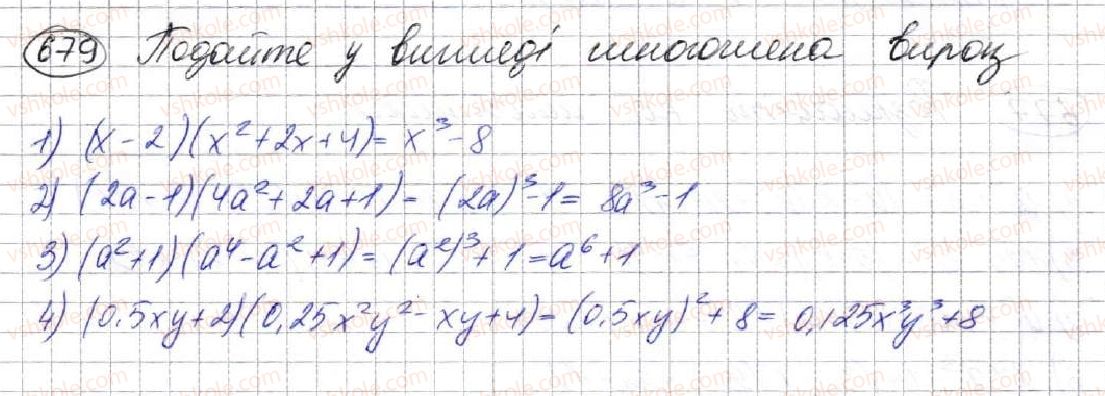 679 Подайте у вигляді многочлена вираз
1) (x - 2)(x² + 2x + 4) = x³ - 8
2) (2a - 1)(4a² + 2a + 1) = (2a)³ - 1 = 8a³ - 1
3) (a² + 1)(a⁴ - a² + 1) = (a²)³ + 1 = a⁶ + 1
4) (0.5xy + 2)(0,25x²y² - xy + 4) = (0.5xy)² + 8 = 0,125x³y³ + 8